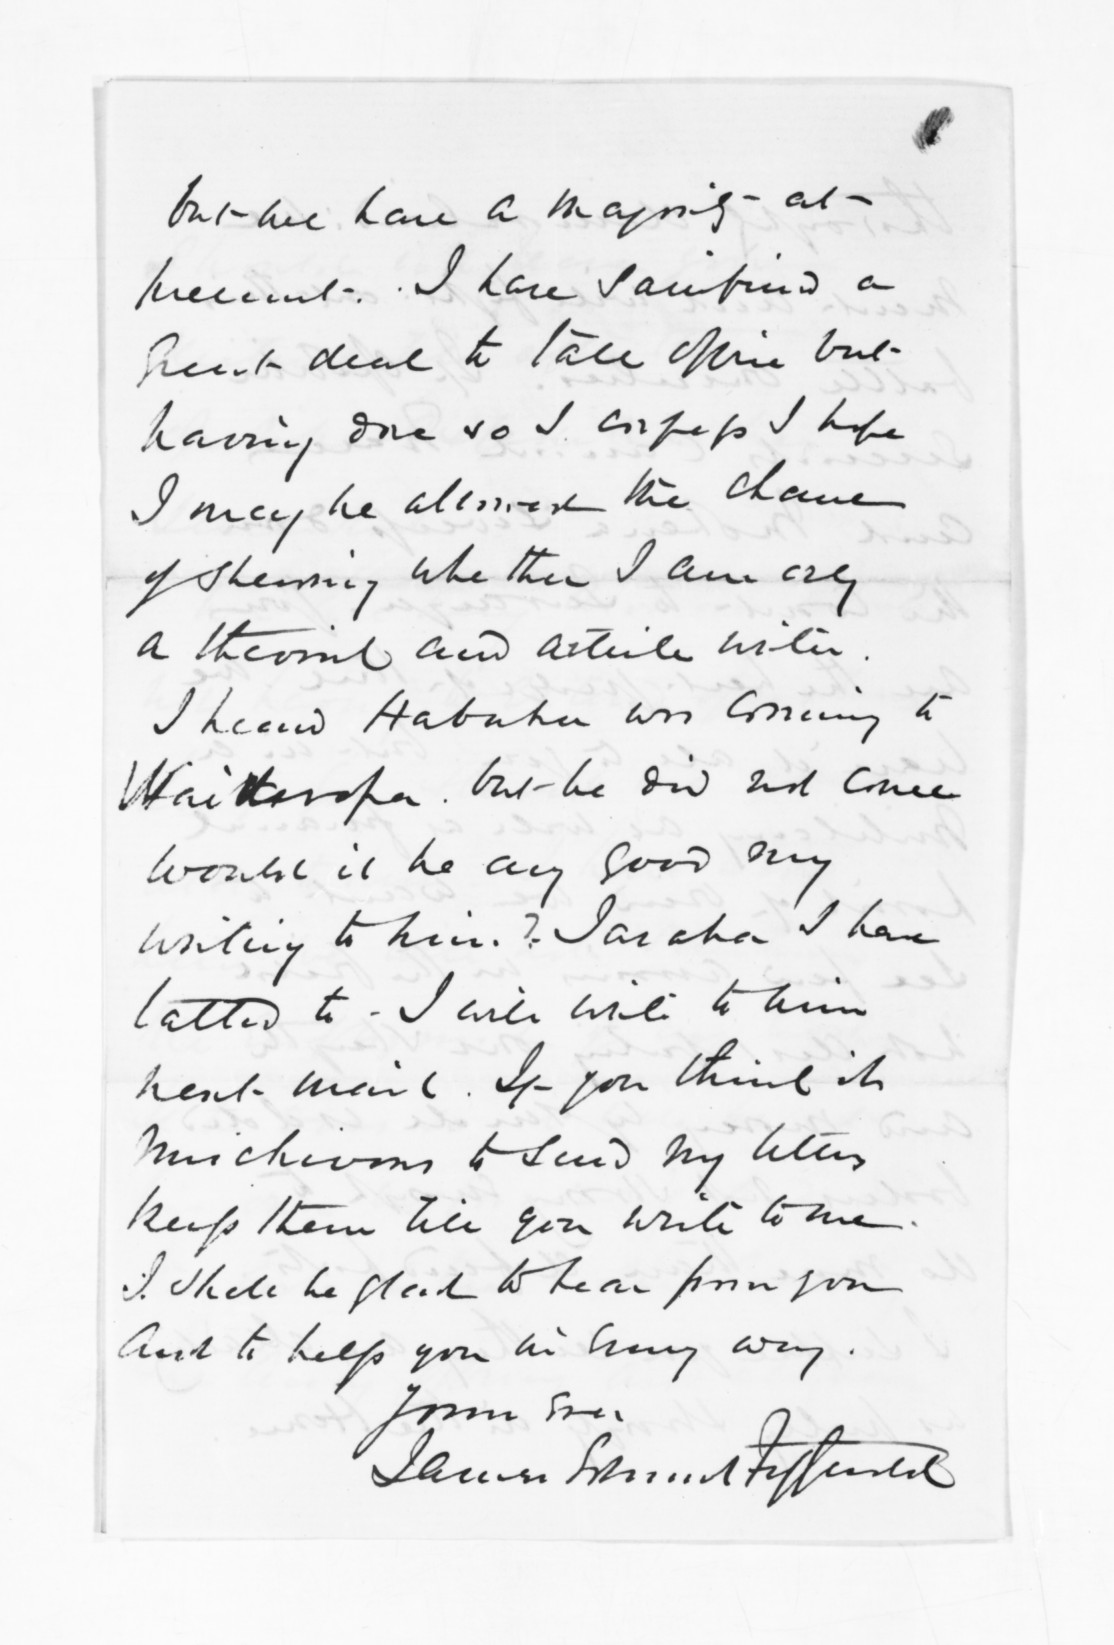 but we have a majority at
present. I have sacrificed a
great deal to take office but
having done so I confess I hope
I may be allowed the chance
of shewing whether I am only
a theorist and article writer.
I heard Habuku was coming to
Wairarapa. but he did not come
would it be any good my
writing to him? Tareha I have
talked to - I will write to him
next mail. If you think it
mischievous to send my letters
keep them till you write to me.
I shall be glad to hear from you
and to help you in every way.
Yours ever
James Edward FitzGerald